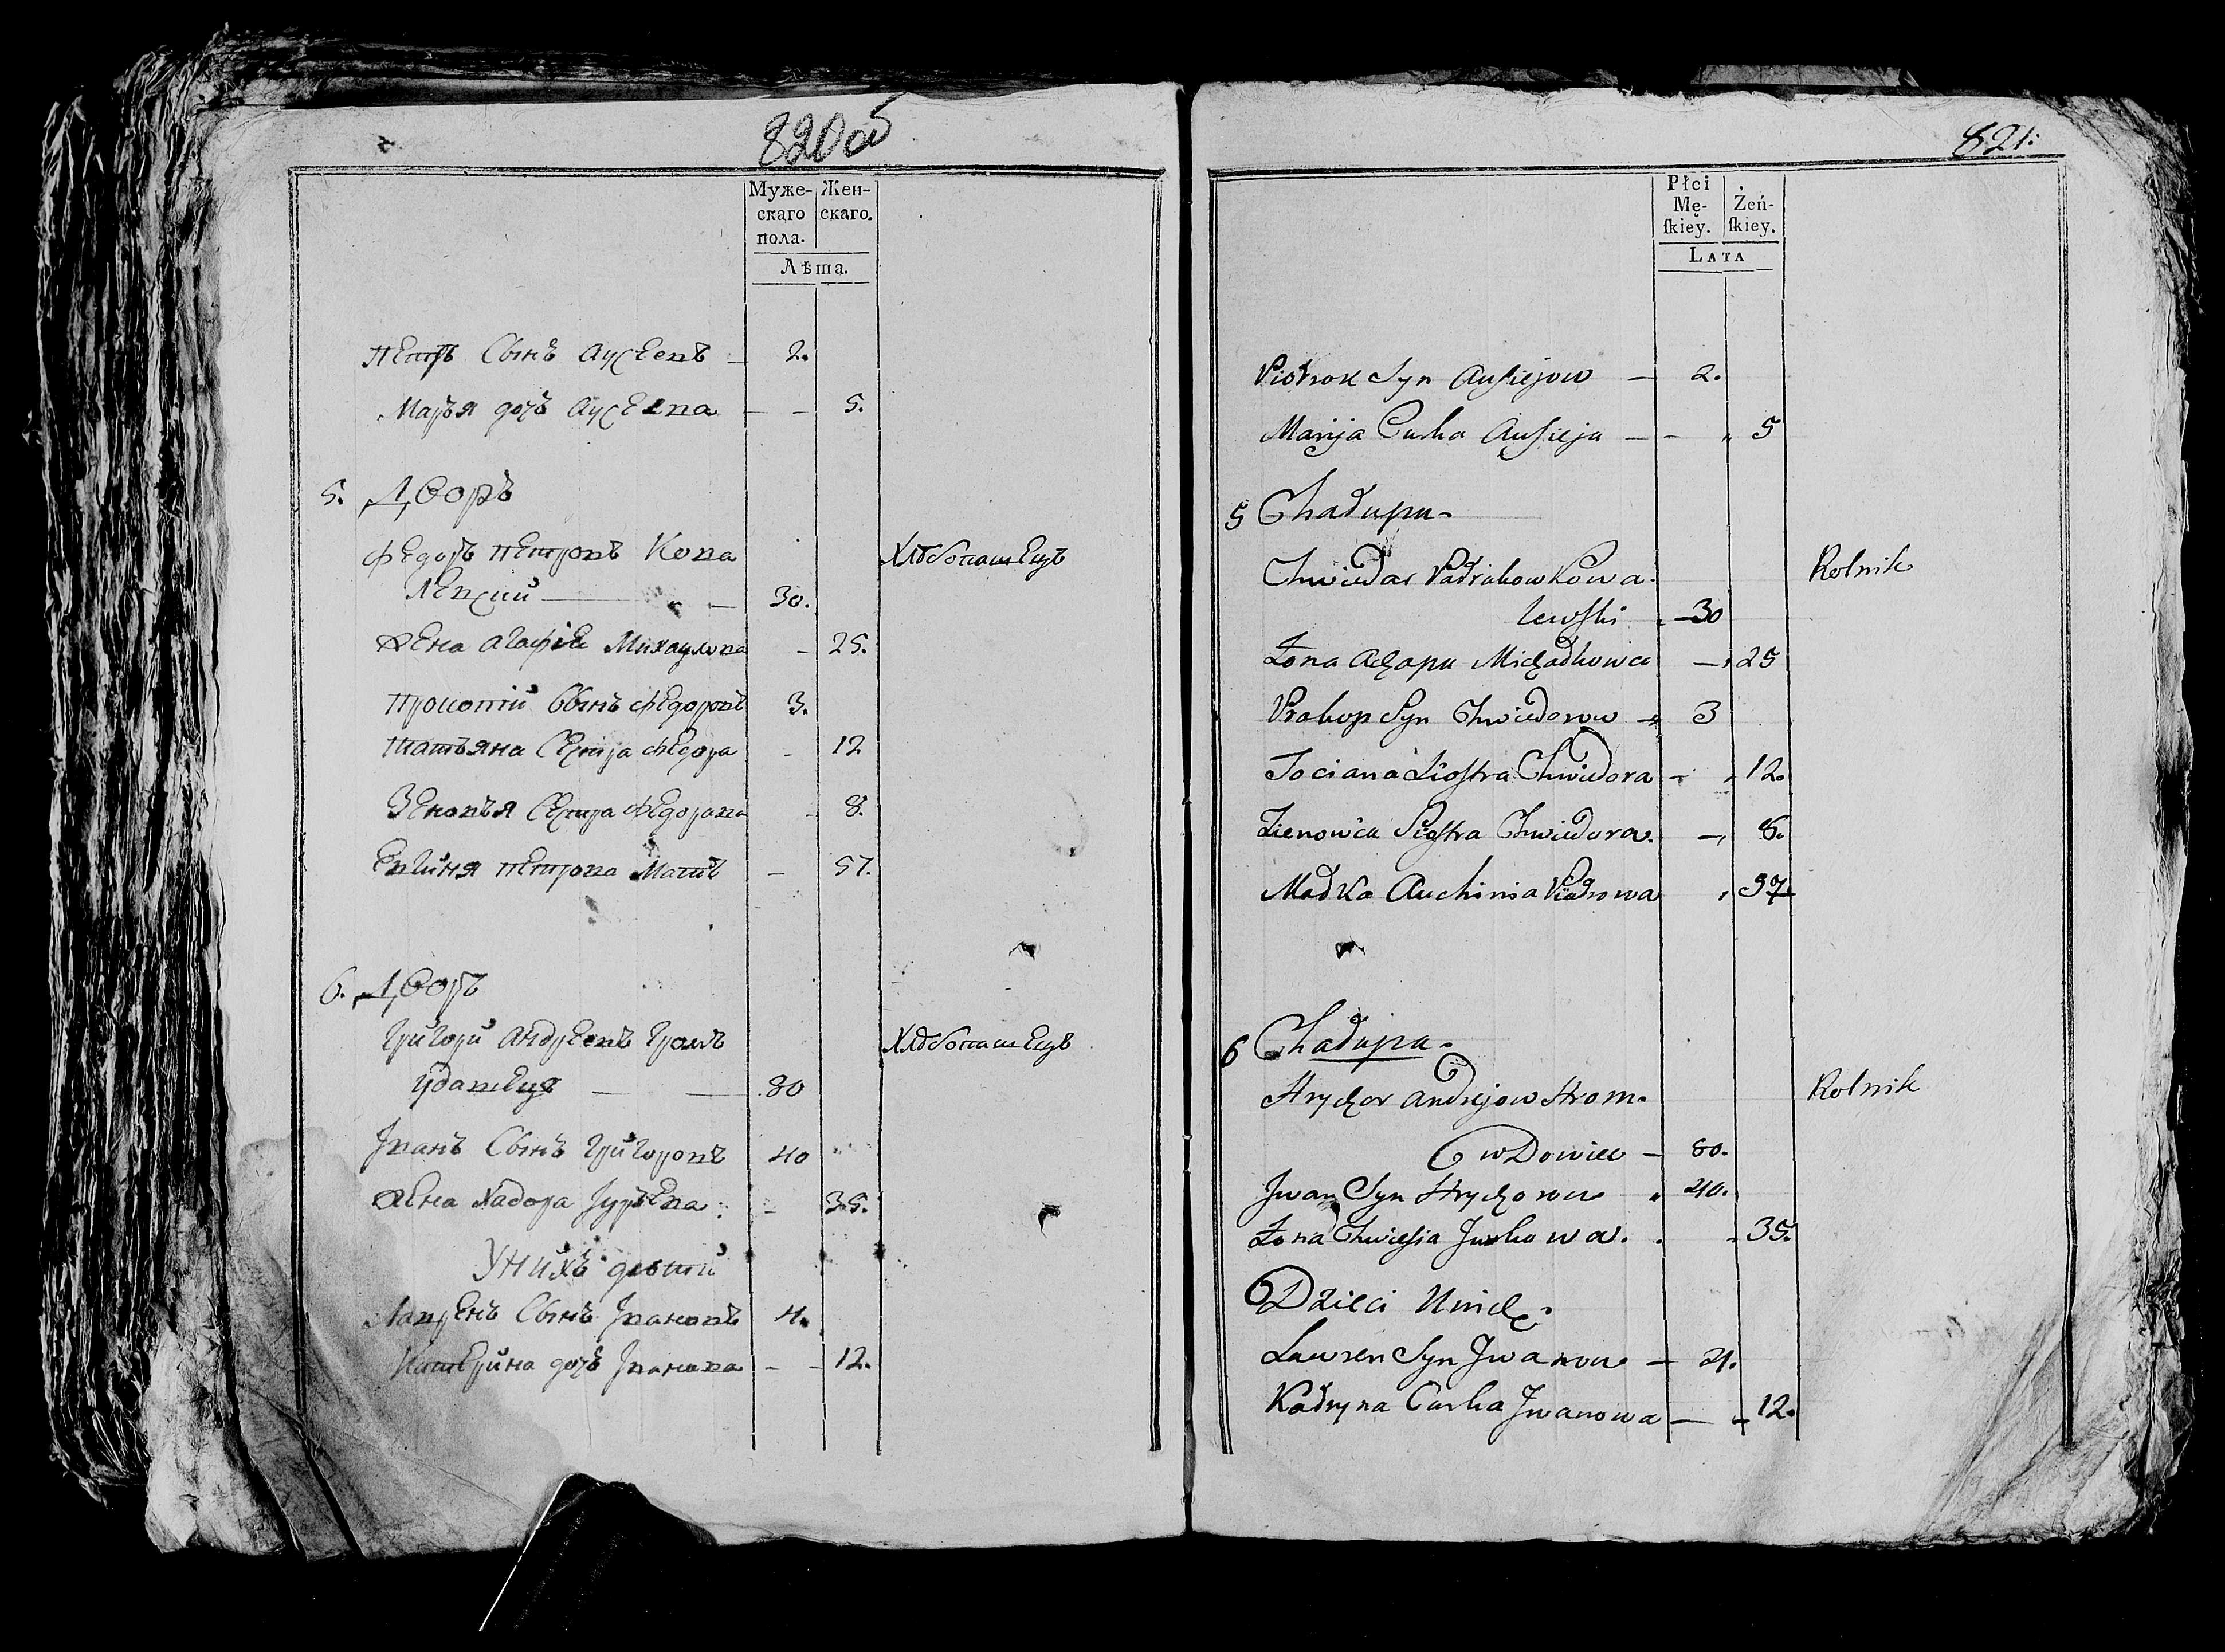 820 об
Муже- Жен-
скаго скаго.
пола.
Лѣта.
Петръ Сынъ Аусеевъ — 2.
Марья дочъ Аусеева — — 5.
5. Дворъ
Федоръ Петровъ Кова Хлѣбопашецъ
левский — 30.
Жена Агафіа Михаулова — 25.
Прокопій Сынъ Федоровъ 3.
Татьяна Сестра Федора — 12
Зеновъя Сестра Федорова — 8.
Евгиня Петрова Мать — 57.
6. Дворъ
Григори Андреевъ Громъ Хлѣбопашецъ
80
Іванъ Сынъ Григоровъ 40
Жена Хадора Юръева — 35.
У нихъ дѣтти
Лавренъ Сынъ Івановъ 4.
Катерина дочъ Іванова — — 12.
821.
Płci Żeń-
Mę- skiey.
skiey.
LATA
Piotrok Syn Ausiejow — 2.
Maryja Curka Ausieja — — 5
5 Chadupa.
Chwiedar Padrukow Kowa Rolnik
lewski — 30
Żona Achapa Michadkowa — 25
Prakop Syn Chwiedorow — 3
Taciana Siostra Chwiedora — 12.
Zienowia Siostra Chwiedora. — 8.
Madka Auchinia Piadrowa 57
6 Chadupa.
Hrychor Andrejow Hrom. Rolnik
wdowiec — 80.
Jwan Syn Hrychorow 40.
Żona Chwiesia Jurkowa. 35.
Dzieci Unich.
Lawren Syn Jwanow — 4.
Kadryna Curka Jwanowa — 12.